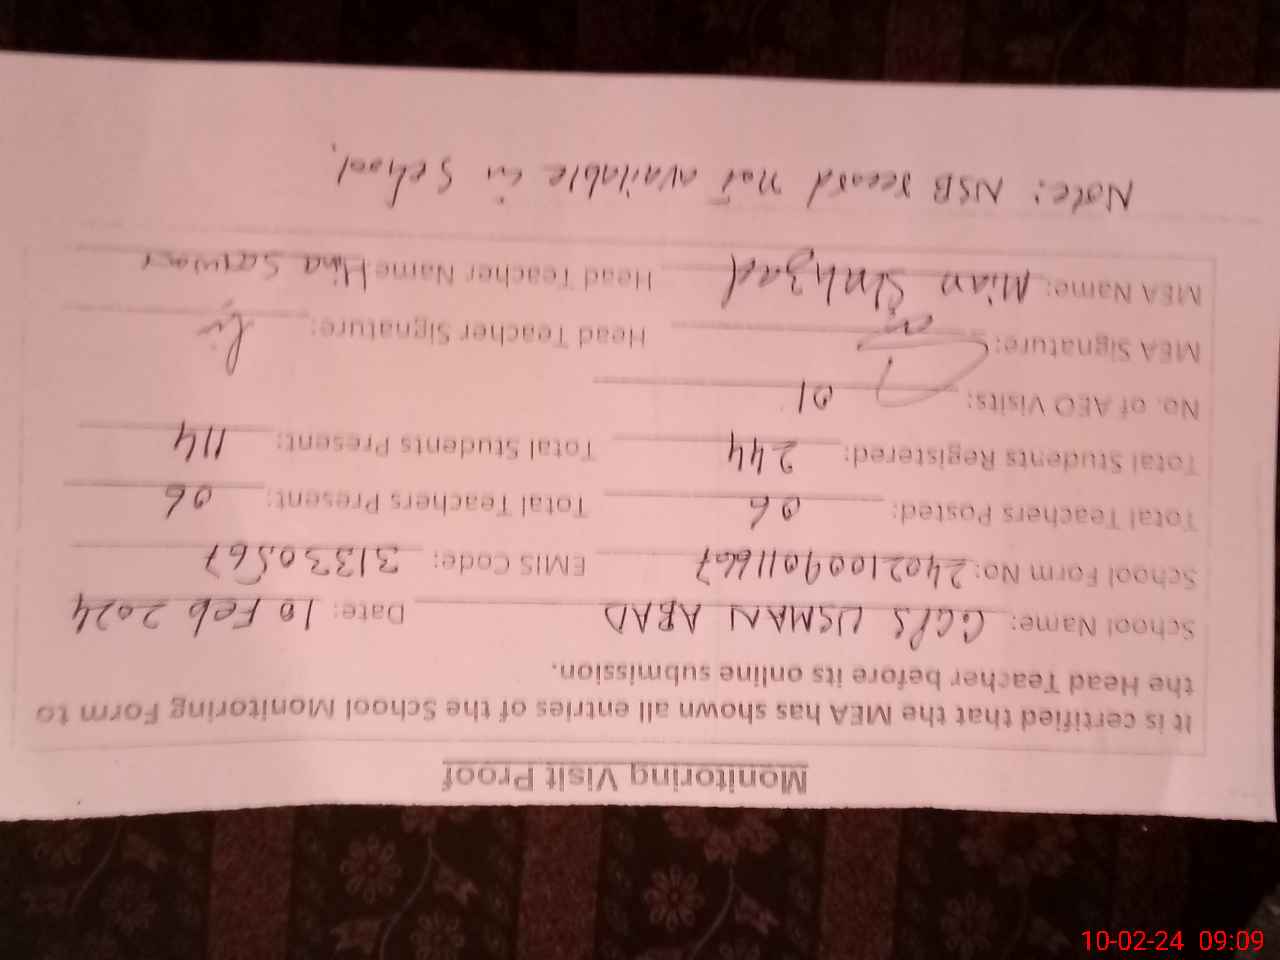 Monitoring Visit Proof
It is certified that the MEA has shown all entries of the School Monitoring Form to
the Head Teacher before its online submission.
School Name: GGPS USMAN ABAD Date: 10 Feb 2024
School Form No: 240210090116667 EMIS Code: 31330567
Total Teachers Posted: 06 Total Teachers Present: 06
Total Students Registered: 244 Total Students Present: 114
No. of AEO Visits: 01
MEA Signature: Head Teacher Signature:
MEA Name: Mian Shahzad Head Teacher Name Hina Sarwar
Note: NSB record not available in School.
10-02-24 09:09